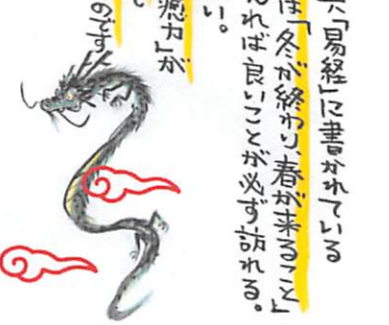 「易経」に書かれている
は「冬が終わり、春が来ること」
れば良いことが必ず訪れる。
い。
癒力」が
のです